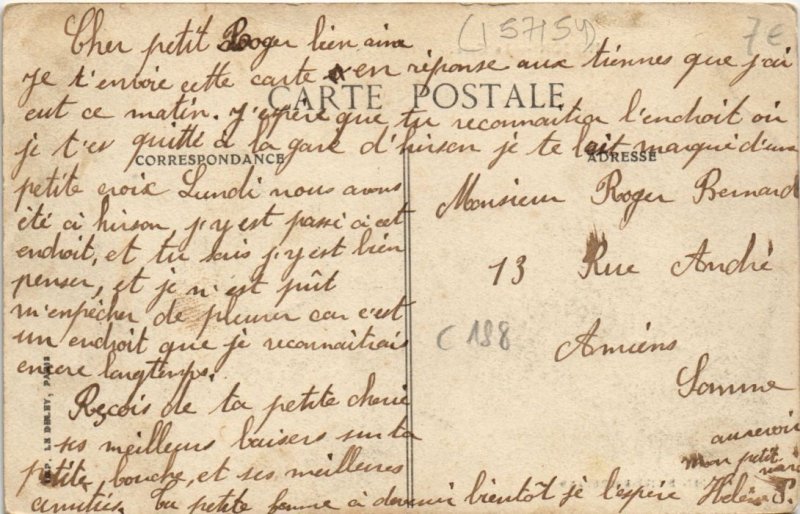 (15715Y)
7€
Cher petit Roger bien aimé
je t'envoie cette carte en réponse aux tiennes que j'ai
CARTE POSTALE
eut ce matin. J'espère que tu reconnaitra l'endroit où
je t'es quitté à la gare d'hirson je te l'ait marqué d'une
CORRESPONDANCE
ADRESSE
petite croix Lundi nous avons
été à hirson, j'y est passé à cet
endroit, et tu sais j'y est bien
penser, et je n'est pût
m'enpêcher de pleurer car c'est
un endroit que je reconnaitrais
encore longtemps.
Reçois de ta petite cherie
ses meilleurs baisers sur ta
petite bouche, et ses meilleures
amitiés. ta petite femme à devenir bientôt je l'espère Hélène P.
Monsieur Roger Bernard
13 Rue André
C 188
Amiens
Somme
aurevoir
mon petit
mari
IMP. LE DELEY, PARIS